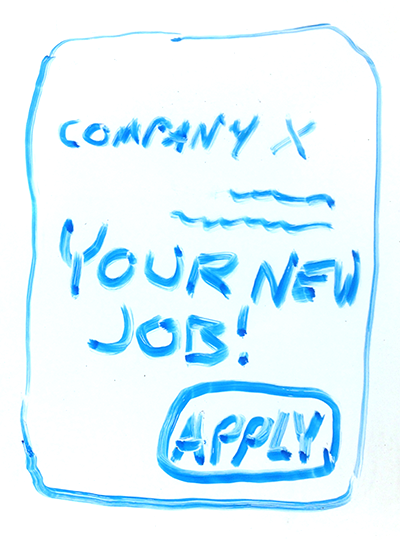 COMPANY X
YOUR NEW
JOB!
APPLY